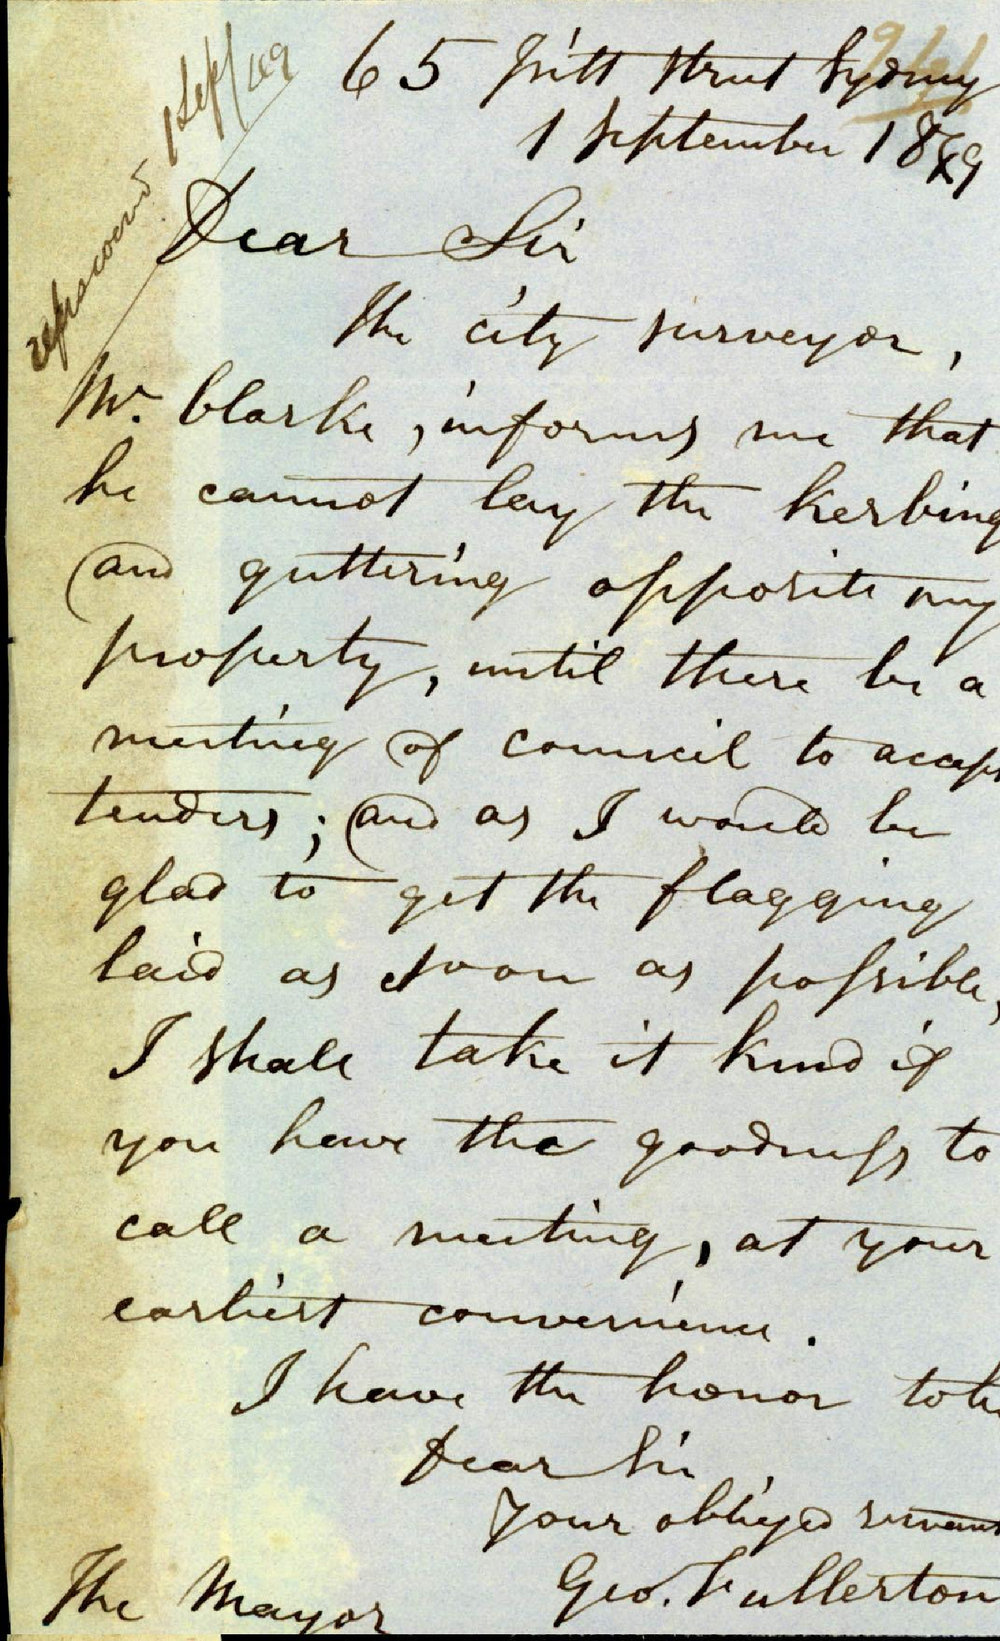 65 Pitt Street Sydney
1 September 1849
1 Sept/49
Dear Sir
The city surveyor,
Mr. Clarke, informs me that
he cannot lay the kerbing
and guttering opposite my
property, until there be a
meeting of council to accept
tenders; and as I would be
glad to get the flagging
laid as soon as possible,
I shall take it kind if
you have the goodness to
call a meeting, at your
earliest convenience.
I have the honor to be
Dear Sir
Your obliged servant
Geo. Fullerton
The Mayor